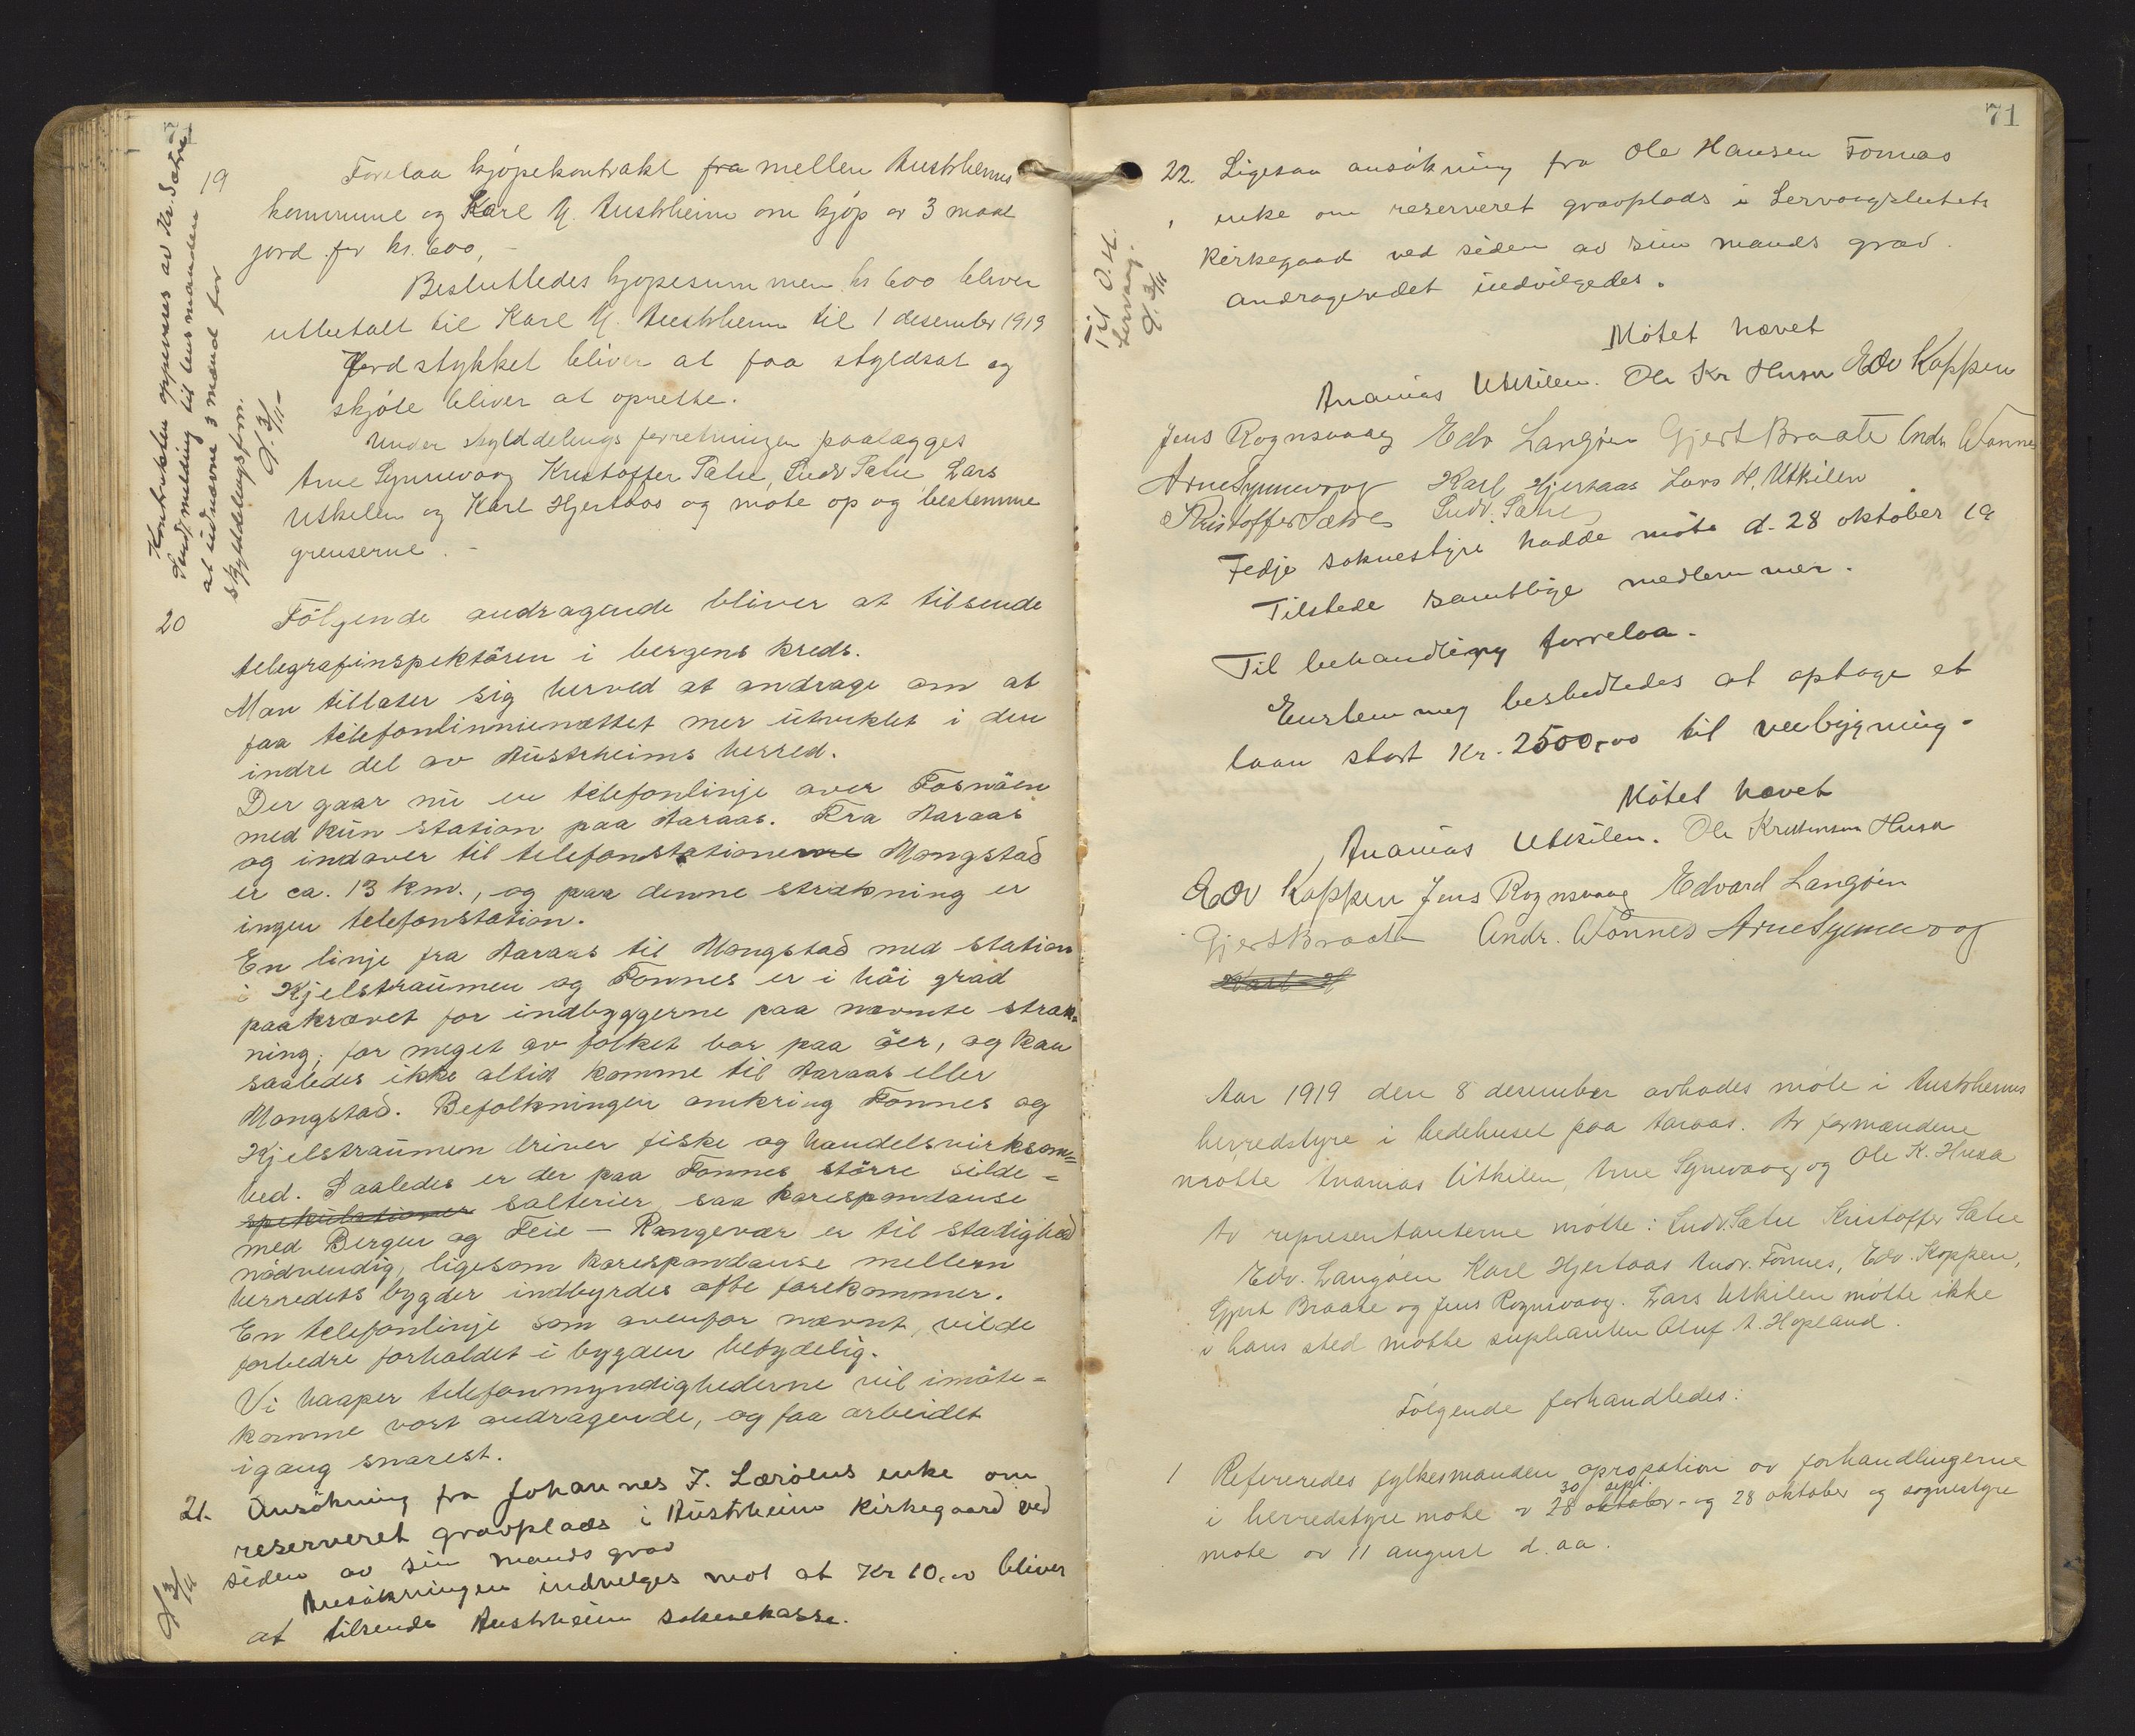 19
Kontrakten oppvises av Kr. Sætre
Send melding til lensmanden
at udnævne 3 mænd for
skylddelingsforr.
Forelaa kjøpekontrakt fra mellem Austrheims
kommune og Karl M. Austrheim om kjøp av 3 maal
jord for kr. 600,-
Besluttedes kjøpesummen kr 600 bliver
utbetalt til Karl M. Austrheim til 1 desember 1919
Jordstykket bliver at faa skyldsat og
skjøte bliver at oprette.
Under skylddelings forretningen paalægges
Arne Synnevaag Kristoffer Sætre, Ludv Sætre Lars
Utkilen og Karl Hjertaas og møte op og bestemme
grenserne. -
20
Følgende andragende bliver at tilsende
telegrafinspektøren i bergens kreds.
Man tillater sig herved at andrage om at
faa telefonlinnienættet mer utviklet i den
indre del av Austrheims herred.
Der gaar nu en telefonlinje over Fosnøen
med kun station paa Aaraas. Fra Aaraas
og indover til telefonstationerne Mongstad
er ca. 13 km., og paa denne strækning er
ingen telefonstation.
En linje fra Aaraas til Mongstad med station
i Kjelstraumen og Fonnes er i høi grad
paakrævet for indbyggerne paa nævnte stræk=
ning; for meget av folket bor paa øer, og kan
saaledes ikke altid komme til Aaraas eller
Mongstad. Befolkningen omkring Fonnes og
Kjelstraumen driver fiske og handelsvirksom=
hed. Saaledes er der paa Fonnes större silde=
spekulationer salterier, saa korespondanse
med Bergen og Feie - Rongevær er til stadighed
nödvendig, ligesom korespondanse mellem
herredets bygder indbyrdes ofte forekommer.
En telefonlinje som ovenfor nævnt, vilde
forbedre forholdet i bygden betydelig.
Vi haaper telefonmyndighederne vil imöte=
komme vort andragende, og faa arbeidet
igang snarest.
21. Ansøkning fra Johannes J. Lerøens enke om
reserveret gravplads i Austrheim Kirkegaard ved
siden av sin mands grav
Ansøkningen indvilges mot at Kr 10,00 bliver
at tilsende Austrheim soknekasse.
71
22. Ligesaa ansøkning fra Ole Hansen Fonnas
enke om reserveret gravplads i Lervaagsluttets
Kirkegaad ved siden av sin mands grav.
Andragendet indvilgedes.
Møtet hævet
Ananias Utkilen. Ole Kr Husa Edv Koppen
Jens Rognsvaag Edv Langøen Gjert Braate Andr Vonnes
Arne Synnevaag Karl Hjertaas Lars H. Utkilen
Kristoffer Sætre Ludv. Sætre
Fedje soknestyre hadde møte d. 28 oktober 19
Tilstede samtlige medlemmer.
Til behandling forrelaa.
Enstemmig besluttedes at optage et
laan stort Kr. 2500,00 til veibygning.
Møtet hævet
Ananias Utkilen. Ole Kristensen Husa
Edv Koppen Jens Rognsvaag Edvard Langøen
Gjert Braate Andr. Vonnes Arne Synnevaag
Karl H
Aar 1919 den 8 desember avholdes møte i Austrheims
herredstyre i bedehuset paa Aaraas. Av formændene
møtte Ananias Utkilen, Arne Synnevaag og Ole K. Husa
Av representanterne møtte: Ludv. Sætre Kristoffer Sætre
Edv. Langøen Karl Hjertaas Andr. Fonnes, Edv. Koppen,
Gjert Braate og Jens Rognsvaag. Lars Utkilen møtte ikke
i hans sted møtte suplianten Oluf A. Hopland.
Følgende forhandledes:
1 Refereredes fylkesmanden apropation av forhandlingerne
30 sept.
i herredstyre møte av 28 oktober - og 28 oktober og sognestyre
møte av 11 august d. aa.